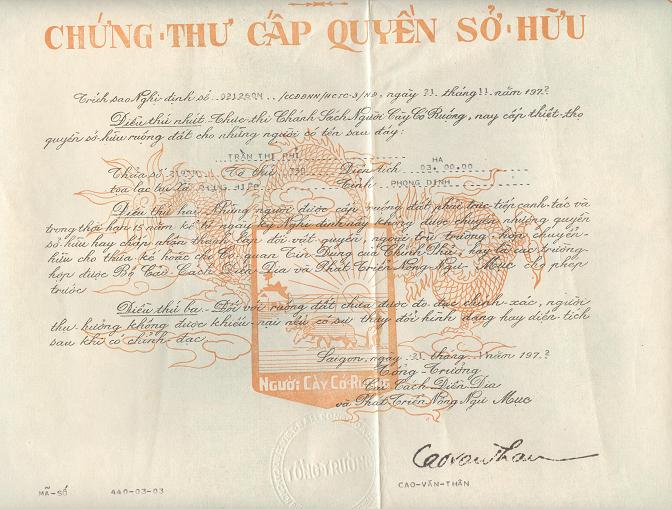 CHỨNG-THƯ CẤP QUYỀN SỞ-HỮU
Trích sao Nghị-định số /CCĐĐNN/HCTC-3/NĐ, ngày tháng 11 năm 197
Điều thứ nhứt.- Thực-thi Chánh Sách Người Cày Có Ruộng, nay cấp thiệt-thọ
quyền sở-hữu ruộng đất cho những người có tên sau đây:
TRẦN THỊ PHỈ
HA
Thửa số Tờ thứ 790 Diện Tích 03.00.00
tọa lạc tại Xã HIEP Tỉnh PHONG DINH
Điều thứ hai.- Những người được cấp ruộng đất phải trực tiếp canh-tác và
trong thời hạn 15 năm kể từ ngày ký Nghị-định này không được chuyển nhượng quyền
sở-hữu hay chấp nhận thành lập đối vật-quyền, ngoại trừ trường-hợp chuyển-
hữu cho thừa kế hoặc cho Cơ-quan Tín Dụng của Chánh Phủ, hay là các trường-
hợp được Bộ Cải-Cách Điền-Địa và Phát Triển Nông-Ngư-Mục cho phép
trước
Điều thứ ba.- Đối với ruộng đất chưa được đo đạc chính-xác, người
thụ-hưởng không được khiếu-nại nếu có sự thay đổi hình dạng hay diện tích
sau khi có chỉnh-đạc.
Saigon, ngày tháng năm 197
Tổng-Trưởng
Cải Cách Điền-Địa
và Phát Triển Nông Ngư Mục
NGƯỜI CÀY CÓ RUỘNG
TỔNG TRƯỞNG
Caovanthan
MÃ-SỐ 440-03-03
CAO-VĂN-THÂN